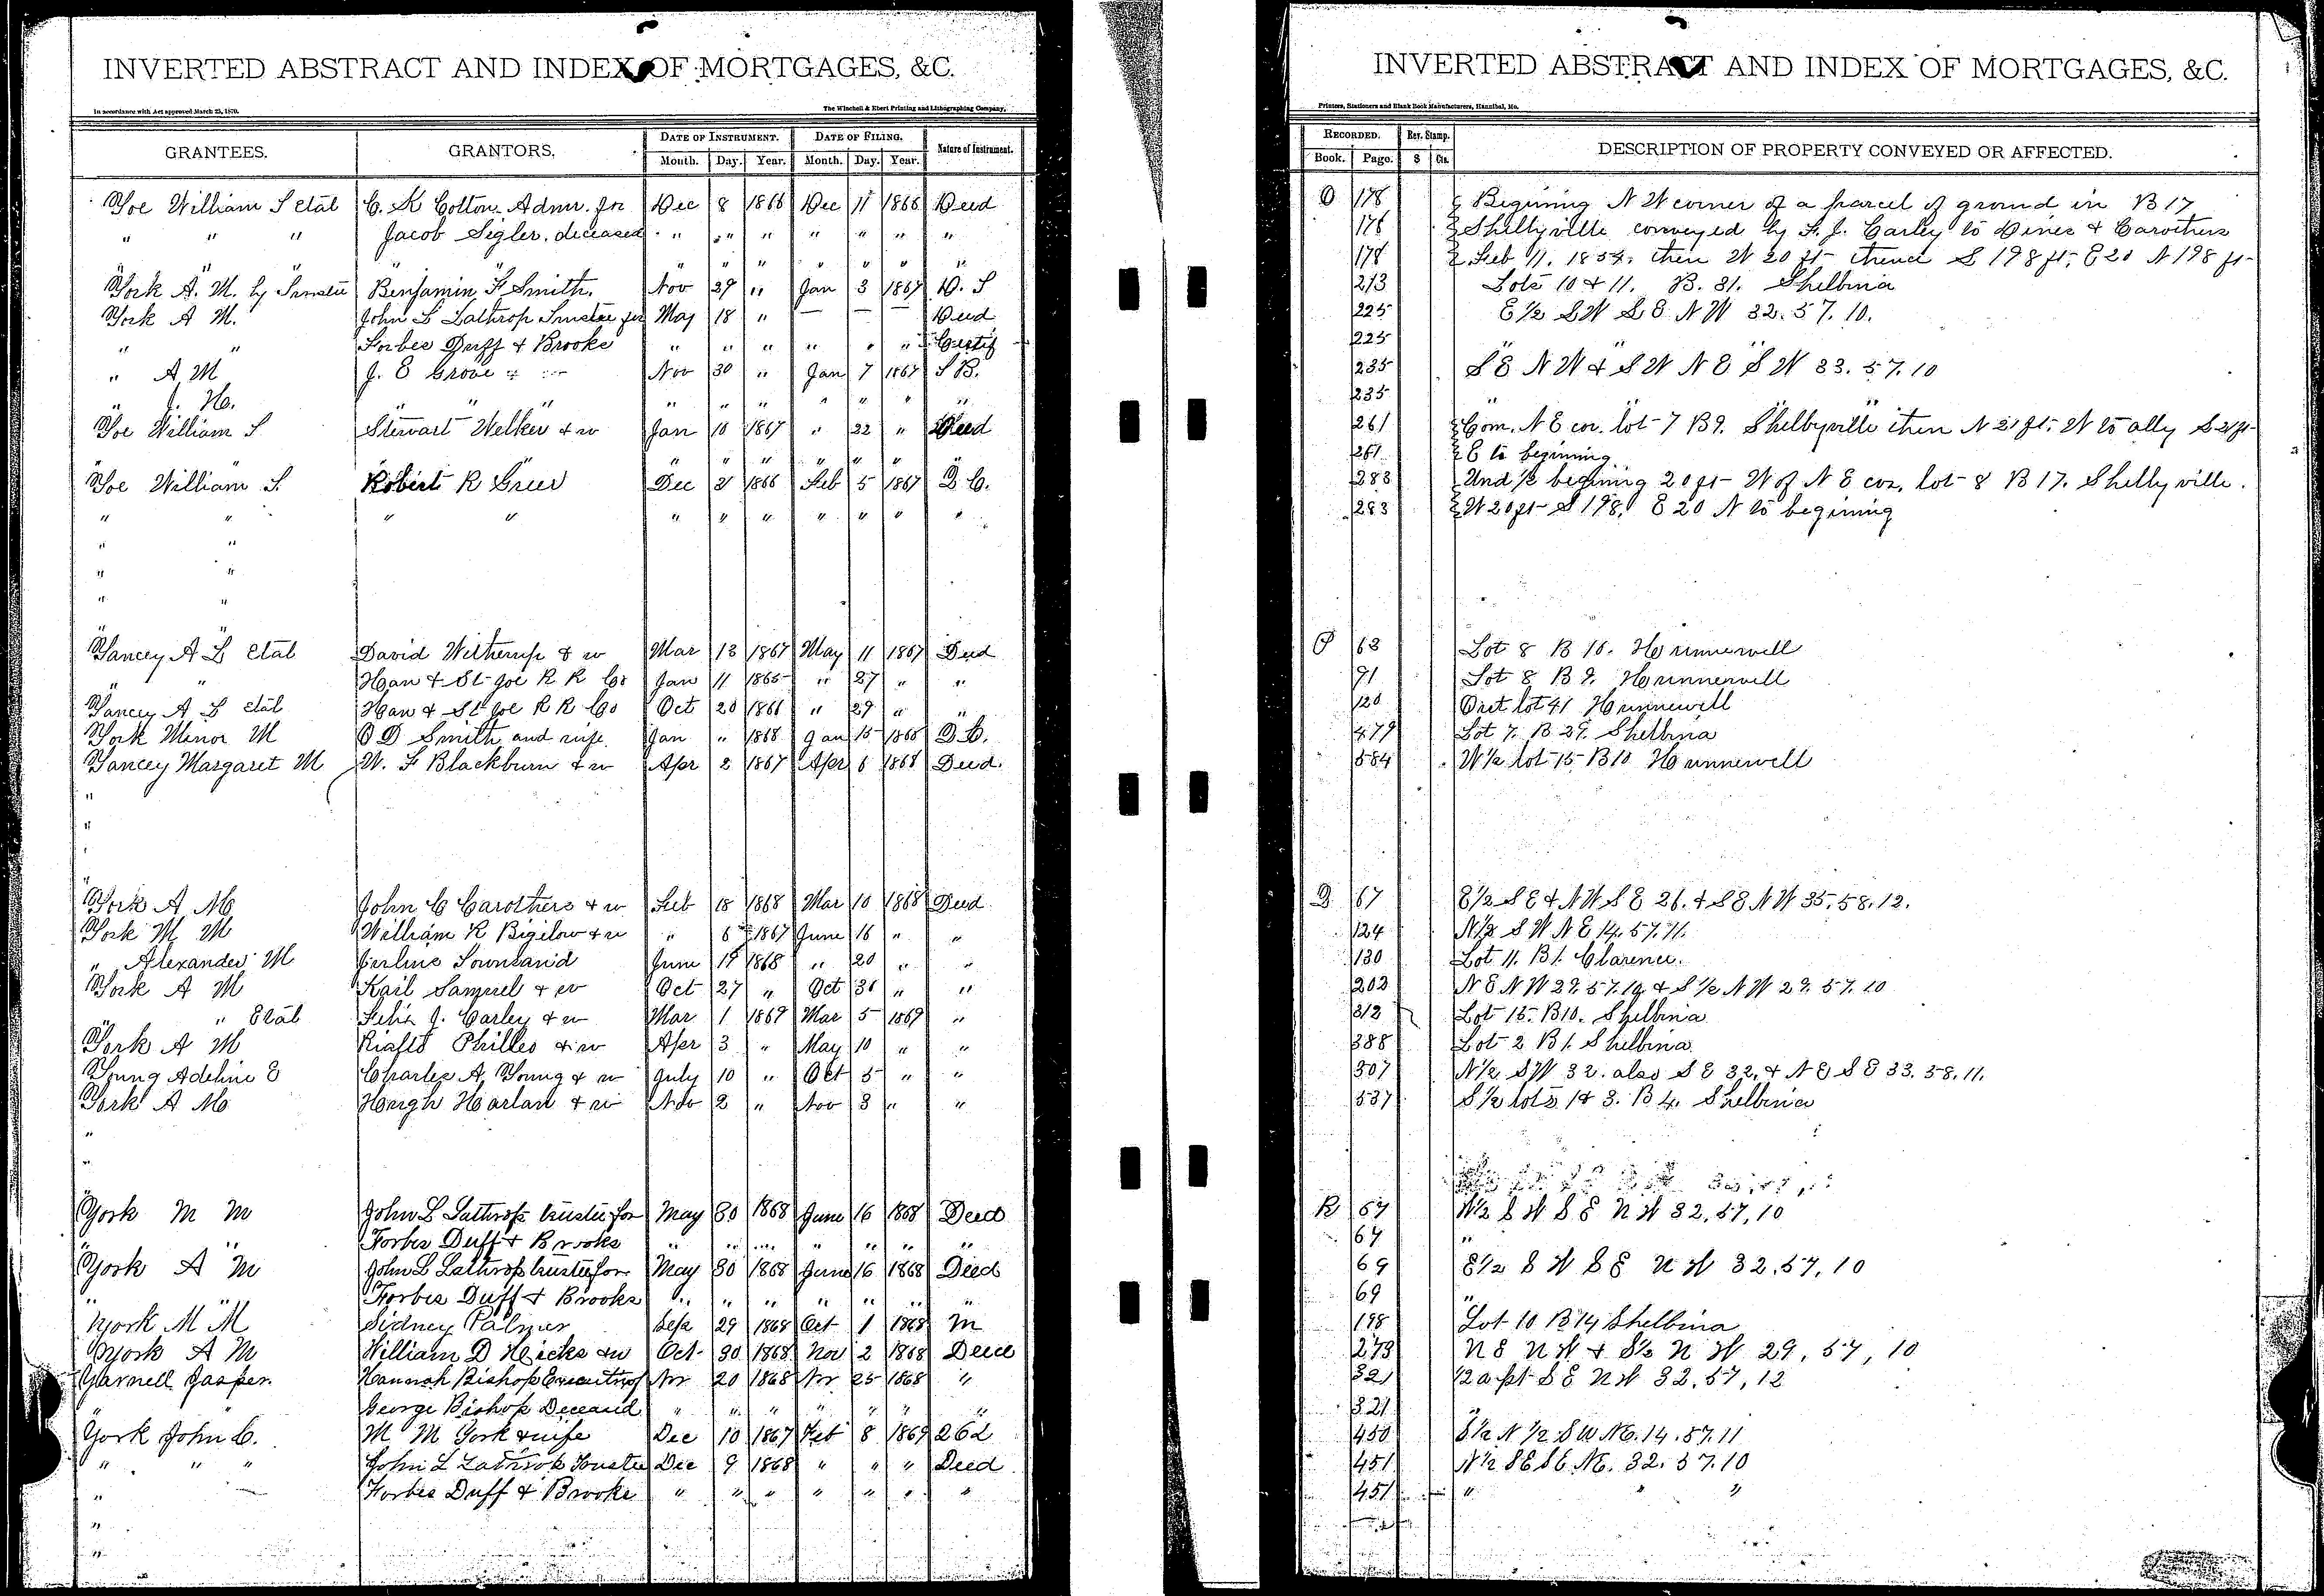 INVERTED ABSTRACT AND INDEX OF MORTGAGES, &C.
In accordance with Act approved March 25, 1870.
The Winchell & Ebert Printing and Lithographing Company,
GRANTEES. GRANTORS. DATE OF INSTRUMENT. DATE OF FILING. Nature of Instrument.
Month. Day. Year. Month. Day. Year.
Yoe William S etal C. K Cotton Admr. for Dec 8 1866 Dec 11 1866 Deed
" " " Jacob Sigler, deceased " " " " " " "
" " " " " " " " "
York A. M. by Trustee Benjamin F Smith. Nov 29 " Jan 3 1867 D. T
York A M. John L Lathrop Trustee for May 18 " — — Deed
" " Forbes Duff & Brooks " " " " " " Certif
" A M J. E Grove & " Nov 30 " Jan 7 1867 T B.
" J. H. " " " " " " " " " "
Yoe William S Stewart Welker & w Jan 10 1867 " 22 " Deed
" " " " " " " "
Yoe William S. Robert R Greer Dec 21 1866 Feb 5 1867 Q C.
" " " " " " " " " " "
" "
" "
" "
"
Yancey A L Etal David Witherup & w Mar 13 1867 May 11 1867 Deed
" " Han & St Joe R R Co Jan 11 1865 " 27 " "
Yancey A L etal Han & St Joe R R Co Oct 20 1866 " 29 " "
York Minor M O D Smith and wife Jan " 1868 Jan 15 1868 Q C.
Yancey Margaret M W. F Blackburn & w Apr 2 1867 Apr 6 1868 Deed.
"
"
"
York A M John C Carothers & w Feb 18 1868 Mar 10 1868 Deed
York M M William R Bigelow & w " 6 1867 June 16 " "
" Alexander M Townsand June 19 1868 " 20 " "
York A M Kail Samuel & w Oct 27 " Oct 31 " "
" " Etal Felix J. Carley & w Mar 1 1869 Mar 5 1869 "
York A M Philles & w Apr 3 " May 10 " "
Young Adeline E Charles A, Young & w July 10 " Oct 5 " "
York A M Hough Harlan & w Nov 2 " Nov 3 " "
"
"
York M M John L Lathrop trustee for May 30 1868 June 16 1868 Deed
" " Forbes Duff & Brooks " " " " " " "
York A M John L Lathrop trustee for May 30 1868 June 16 1868 Deed
" Forbes Duff & Brooks " " " " " " "
York M M Sidney Palmer Sep 29 1868 Oct 1 1868 M
York A M William D Hicks & w Oct 30 1868 Nov 2 1868 Deed
Yarnell Jasper. Hannah Bishop Executrix of Nov 20 1868 Nov 25 1868 "
George Bishop Deceased " " " " " " "
York John C. M M York & wife Dec 10 1867 Feb 8 1869 2 C d
" " " John L Lathrop Trustee Dec 9 1868 " " " Deed
" Forbes Duff & Brooks " " " " " " "
"
"
INVERTED ABSTRACT AND INDEX OF MORTGAGES, &C.
Printers, Stationers and Blank Book Manufacturers, Hannibal, Mo.
RECORDED. Rev. Stamp. DESCRIPTION OF PROPERTY CONVEYED OR AFFECTED.
Book. Page. $ Cts.
O 178 Begining N W corner of a parcel of ground in B 17
178 Shelbyville conveyed by F. J. Carley to Dines & Carothers
178 Feb 11, 1854, then W 20 ft thence S 198 ft, E 20 N 198 ft
213 Lots 10 & 11. B. 31. Shelbina
225 E ½ S W S E N W 32. 57. 10.
225 "
235 S E N W & S W N E S W 33. 57. 10
235 " "
261 Com. N E cor. lot 7 B 9. Shelbyville then N 21 ft. W to ally S 21 ft
261 E to beginning
283 Und ½ begining 20 ft W of N E cor, lot 8 B 17. Shelbyville.
283 W 20 ft S 198, E 20 N to begining
P 63 Lot 8 B 16. Hunnewell
91 Lot 8 B 9. Hunnewell
120 Out lot 41 Hunnewell
479 Lot 7. B 29. Shelbina
584 W ½ lot 15 B 10 Hunnewell
Q 67 E ½ S E & N W S E 26. & S E N W 35. 58. 12.
124 N ½ S W N E 14. 57. 11.
130 Lot 11. B 1. Clarence.
202 N E N W 29. 57. 10 & S ½ N W 29. 57. 10
312 Lot 15. B 10. Shelbina
388 Lot 2 B 1. Shelbina
507 N ½ S W 32. also S E 32, & N E S E 33. 58. 11.
537 S ½ lots 1 & 3. B 4. Shelbina
R 67 W ½ S W S E N W 32, 57, 10
67 "
69 E ½ S W S E N W 32, 57, 10
69 "
198 Lot 10 B 14 Shelbina
273 N E N W & S ½ N W 29, 57, 10
321 12 a pt S E N W 32, 57, 12
321 "
450 S ½ N ½ S W N E. 14. 57. 11
451 N ½ S E S E N E. 32. 57. 10
451 " " "